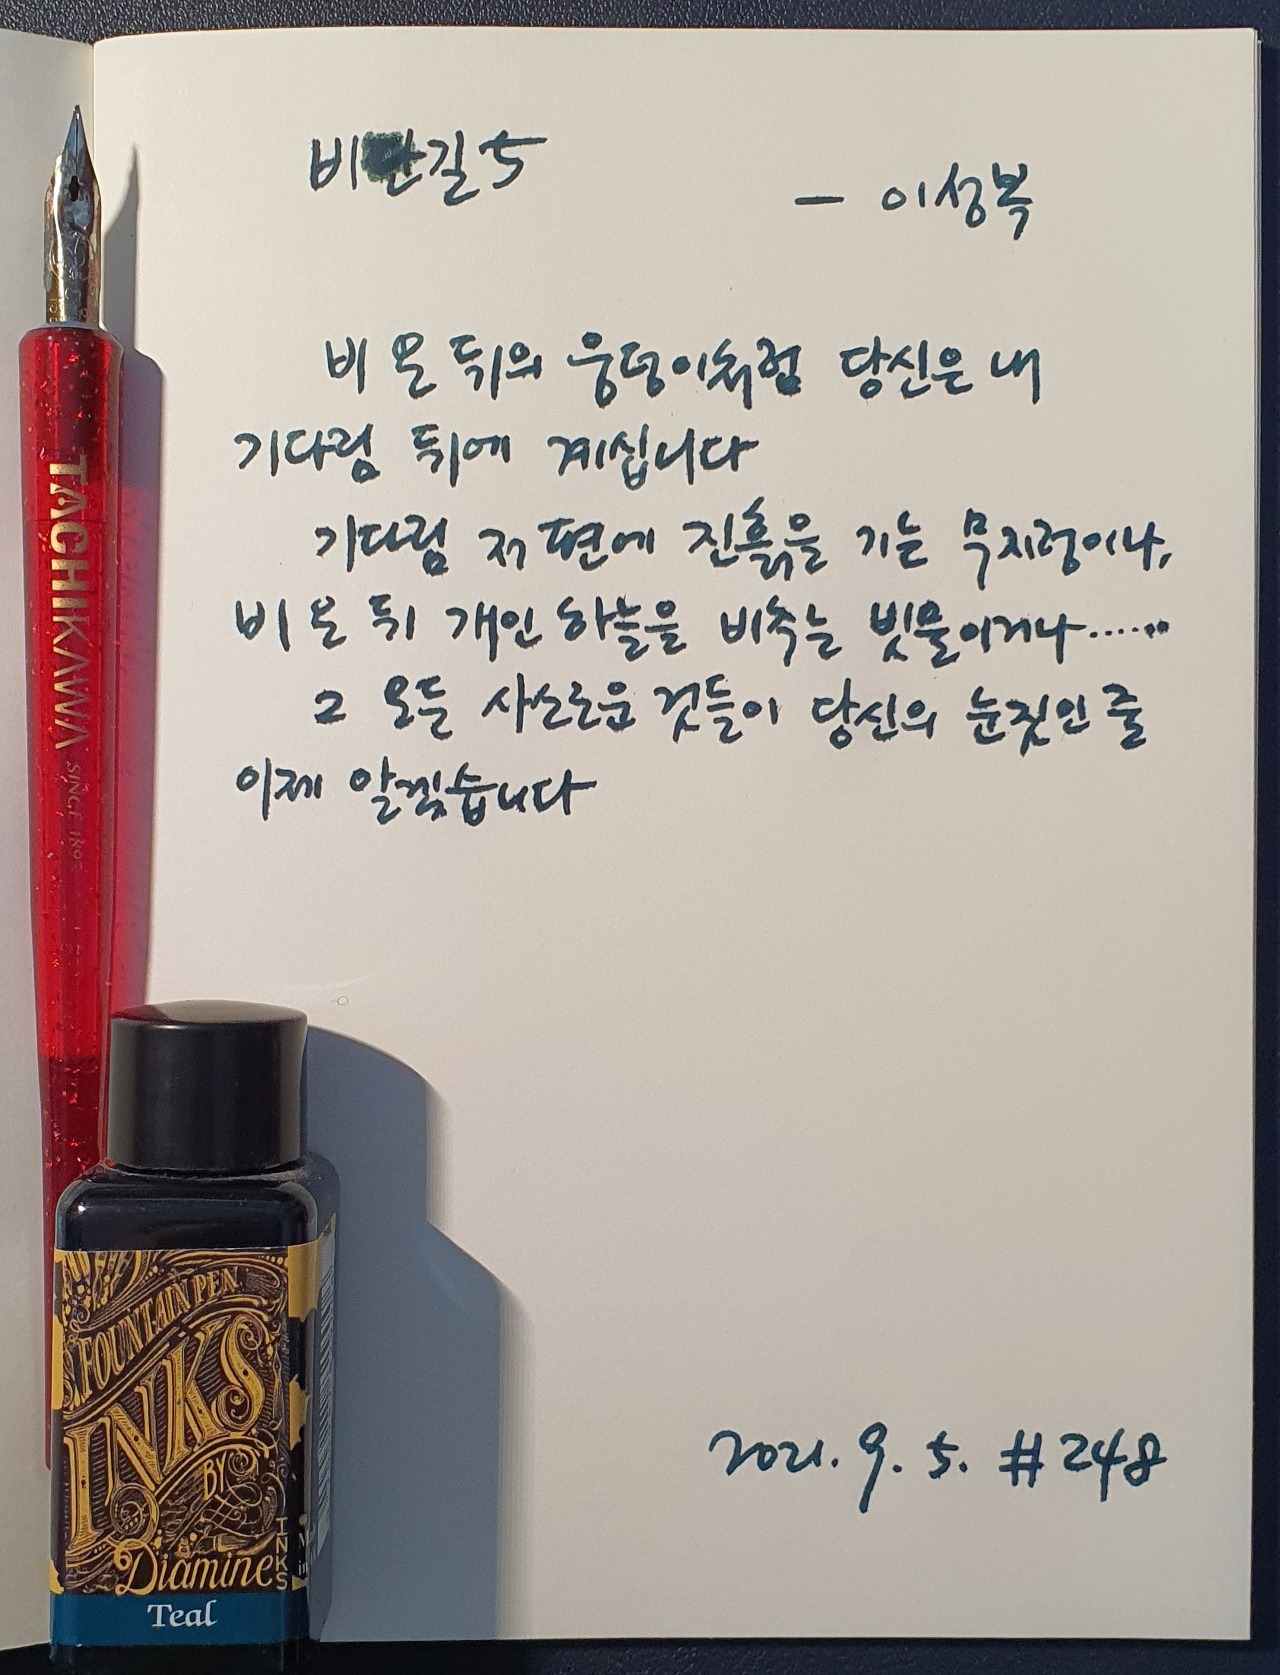 비단길 5
— 이성복
비 온 뒤의 웅덩이처럼 당신은 내
기다림 뒤에 계십니다
기다림 저편에 진흙을 기는 무지렁이나,
비 온 뒤 개인 하늘을 비추는 빗물이거나......
그 모든 사소로운 것들이 당신의 눈짓인 줄
이제 알겠습니다
2021. 9. 5. #248
TACHIKAWA SINCE 189
FOUNTAIN PEN
INKS
BY
Diamine
INKS
Teal